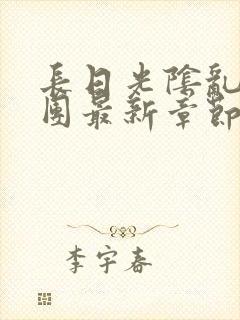 長日光陰亂
團最新章節
李宇春